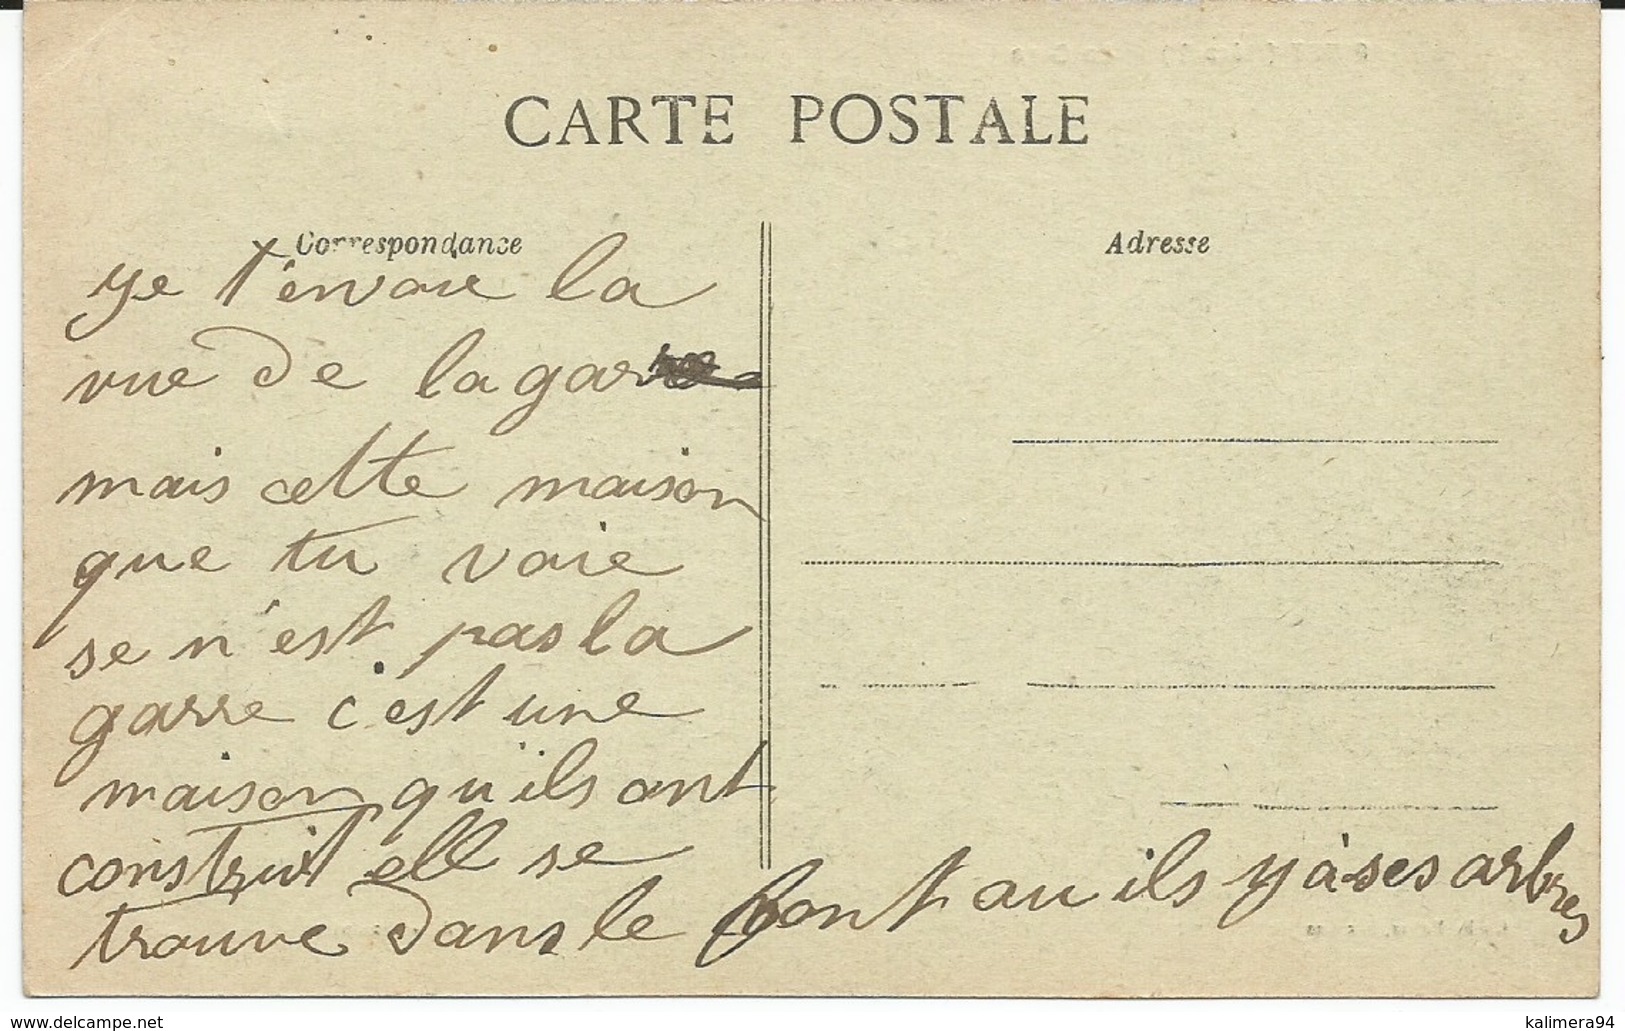 CARTE POSTALE
Correspondance
Adresse
Je t'envoie la
vue de la gare
mais cette maison
que tu voie
se n'est pas la
garre c'est une
maison qu'ils ont
construit elle se
trouve dans le font au ils y à ses arbres
www.delcampe.net
kalimera94